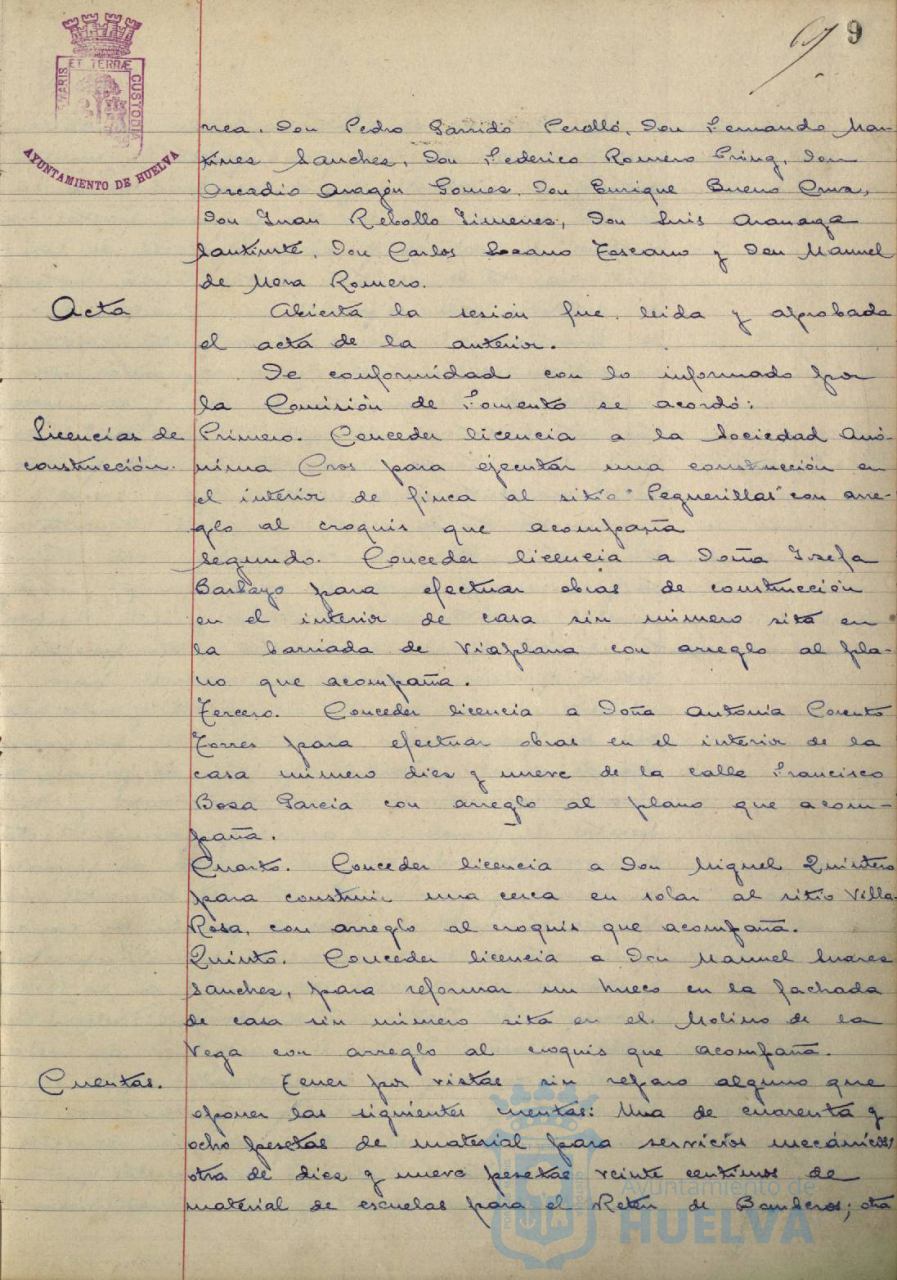 9
PORTUS MARIS ET TERRÆ CUSTODIA
AYUNTAMIENTO DE HUELVA
rrea. Don Pedro Garrido Perelló, Don Fernando Mar-
tines Sanches, Don Federico Romero Pring, Don
Arcadio Aragón Gomes, Don Enrique Bueno Cruz,
Don Juan Rebollo Jimenes, Don Luis
Don Carlos Lozano Toscano y Don Manuel
de Mora Romero.
Acta
Abierta la sesión fue leida y aprobada
el acta de la anterior.
De conformidad con lo informado por
la Comisión de Fomento se acordó:
Licencias de
construcción.
Primero. Conceder licencia a la Sociedad Anó-
nima Cros para ejecutar una construcción en
el interior de finca al sitio "Peguerillas" con arre-
glo al croquis que acompaña
segundo. Conceder licencia a Doña Josefa
Barbazo para efectuar obras de construcción
en el interior de casa sin número sita en
la barriada de Viaplana con arreglo al pla-
no que acompaña.
Tercero. Conceder licencia a Doña Antonia Corento
Torres para efectuar obras en el interior de la
casa número dies y nueve de la calle Francisco
Bosa Garcia con arreglo al plano que acom-
paña.
Cuarto. Conceder licencia a Don Miguel Quintero
para construir una cerca en solar al sitio Villa
Rosa, con arreglo al croquis que acompaña.
Quinto. Conceder licencia a Don Manuel Suares
Sanches, para reformar un hueco en la fachada
de casa sin número sita en el Molino de la
Vega con arreglo al croquis que acompaña.
Cuentas.
Tener por vistas sin reparo alguno que
oponer las siguientes cuentas: Una de cuarenta y
ocho pesetas de material para servicios mecánicos;
otra de dies y nueve pesetas veinte centimos de
material de escuelas para el Retén de Bomberos; otra
Ayuntamiento de
HUELVA